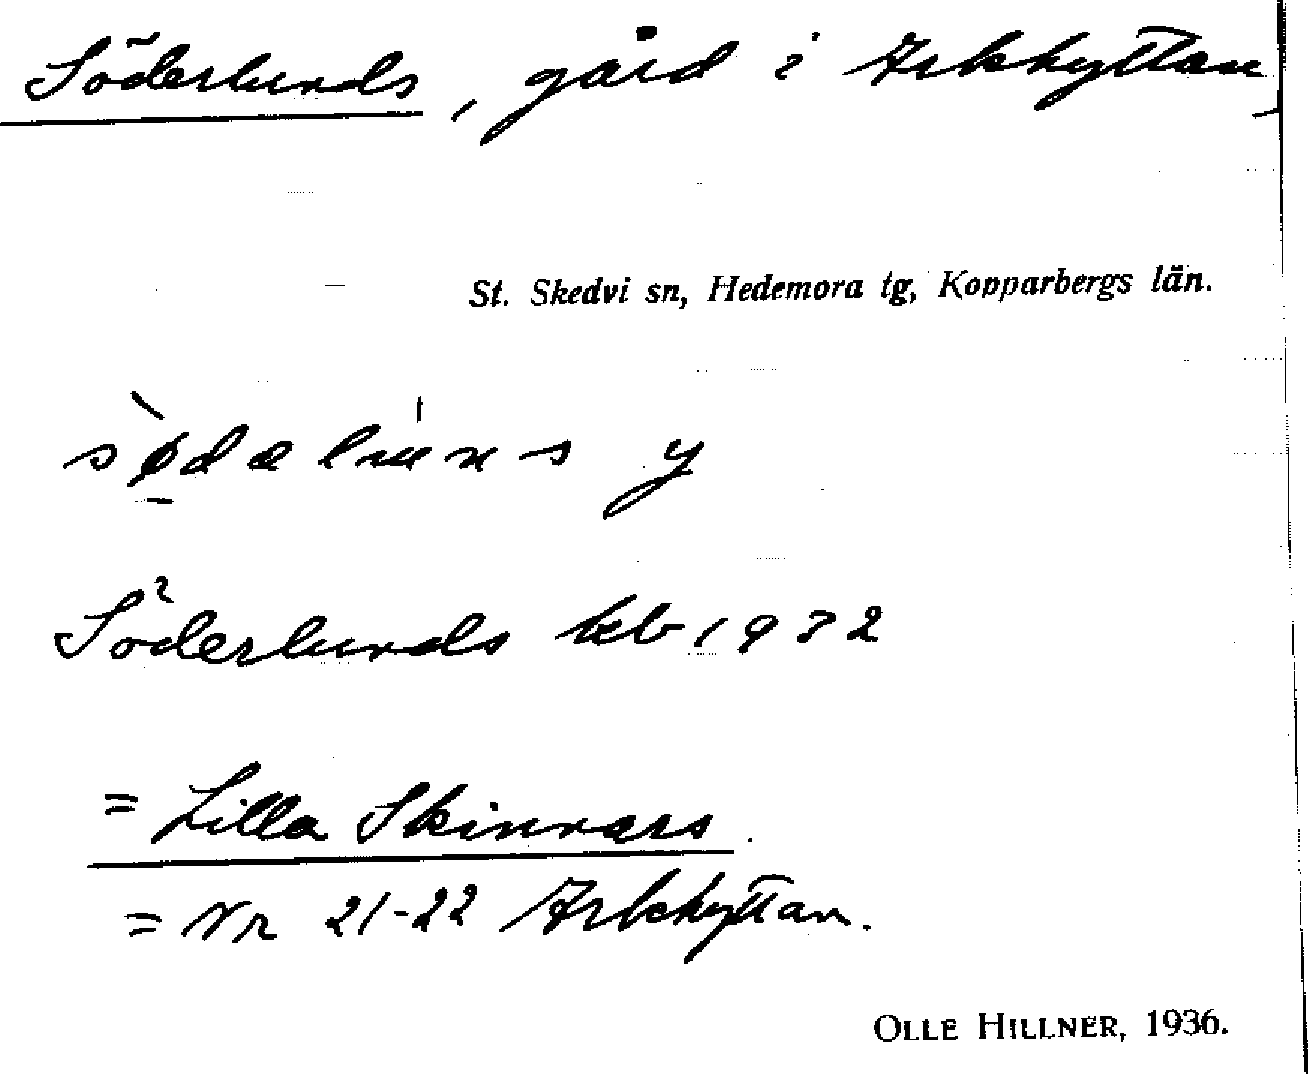 Söderlunds, gård i Arkhyttan,
St. Skedvi sn, Hedemora tg, Kopparbergs län.
y
Söderlunds kb 1932
= Lilla Skinnars.
= Nr 21-22 Arkhyttan.
OLLE HILLNER, 1936.